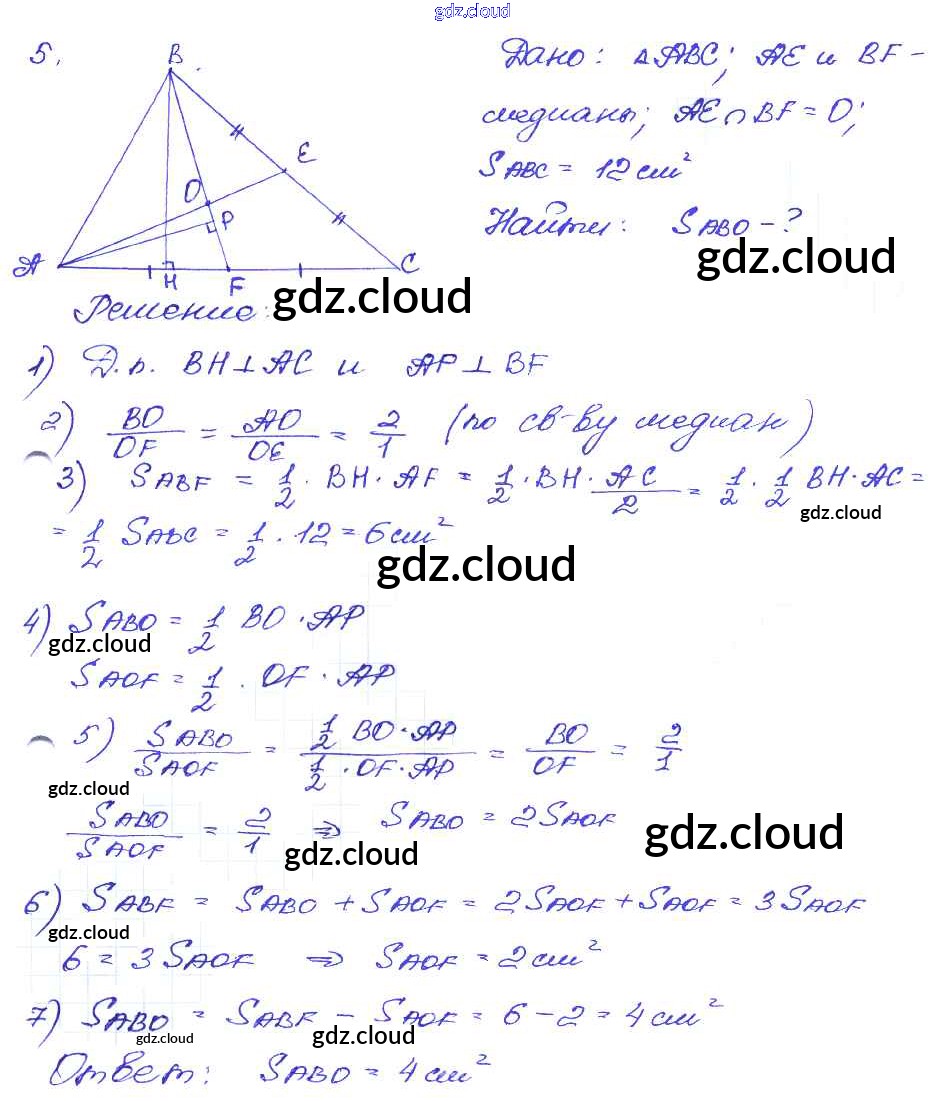 gdz.cloud
5. B Дано: △ABC; AE и BF -
медианы; AE∩BF = O;
E SABC = 12 см²
O P Найти: SABO - ?
gdz.cloud
A H F C
Решение: gdz.cloud
1) Д.п. BH⊥AC и AP⊥BF
2) BO/OF = AO/OE = 2/1 (по св-ву медиан)
3) SABF = 1/2 · BH · AF = 1/2 · BH · AC/2 = 1/2 · 1/2 BH · AC =
gdz.cloud
= 1/2 SABC = 1/2 · 12 = 6 см²
gdz.cloud
4) SABO = 1/2 BO · AP
gdz.cloud
SAOF = 1/2 · OF · AP
5) SABO/SAOF = 1/2 BO · AP / 1/2 · OF · AP = BO/OF = 2/1
gdz.cloud
SABO/SAOF = 2/1 ⇒ SABO = 2SAOF
gdz.cloud gdz.cloud
6) SABF = SABO + SAOF = 2SAOF + SAOF = 3SAOF
gdz.cloud
6 = 3 SAOF ⇒ SAOF = 2 см²
7) SABO = SABF - SAOF = 6 - 2 = 4 см²
gdz.cloud gdz.cloud
Ответ: SABO = 4 см²